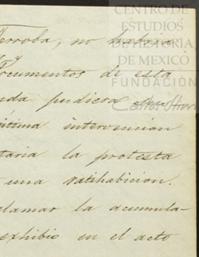 CENTRO DE
ESTUDIOS
DE HISTORIA
DE MÉXICO
FUNDACIÓN
Carlos
Terroba, no
documentos de esta
eda perdicora
itima intervencion
taria la protesta
una ratihabicion.
clamar la acumula-
exhibio en el acto